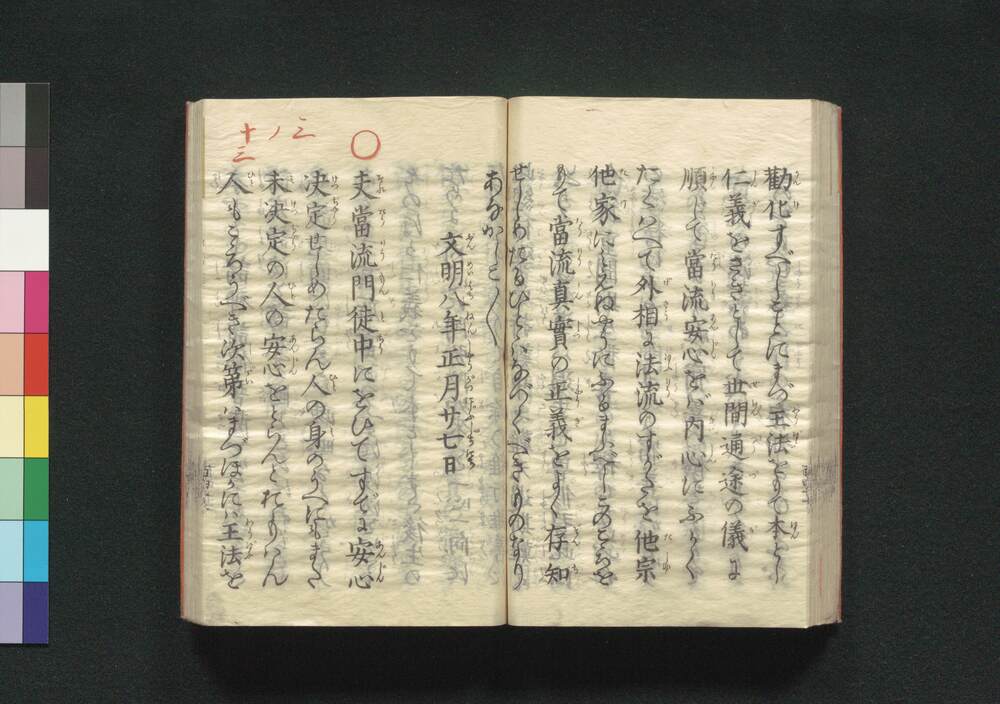 勸化すべしことにまづ王法をもて本とし
仁義をさきとして世間通途の儀に
順じて當流安心をば内心にふかく
たくはへて外相に法流のすがたを他宗
他家にみえぬやうにふるまふべしこのこゝろを
もて當流真實の正義をよく存知
せしめたるひとゝはなづくべきものなり
あなかしこ〱
文明八年正月廿七日
〇
三ノ
十三
夫當流門徒中にをひてすでに安心
決定せしめたらん人の身のうへにもまた
未決定の人の安心をとらんとおもはん
人もこゝろうべき次第はまづほかには王法を